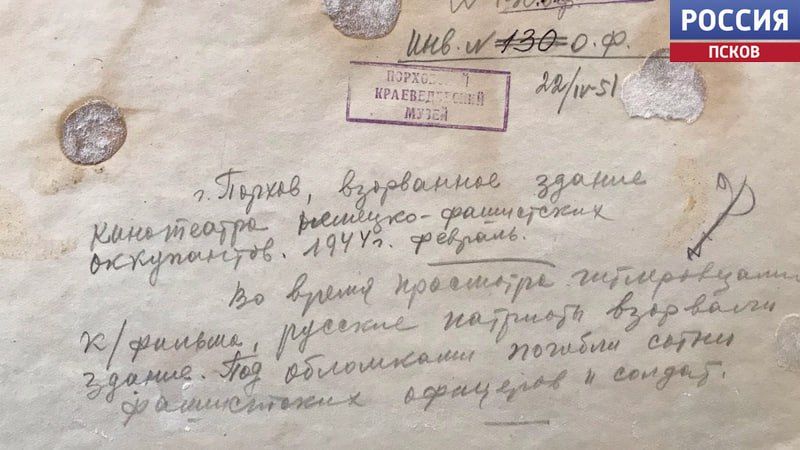 РОССИЯ
ПСКОВ
Инв. № 130 О.Ф.
22/IV-51
ПОРХОВСКИЙ
КРАЕВЕДЧЕСКИЙ
МУЗЕЙ
г. Порхов, взорванное здание
кинотеатра немецко-фашистских
оккупантов. 1944 г. февраль.
Во время просмотра гитлеровцами
к/фильма, русские патриоты взорвали
здание. Под обломками погибли сотни
фашистских офицеров и солдат.